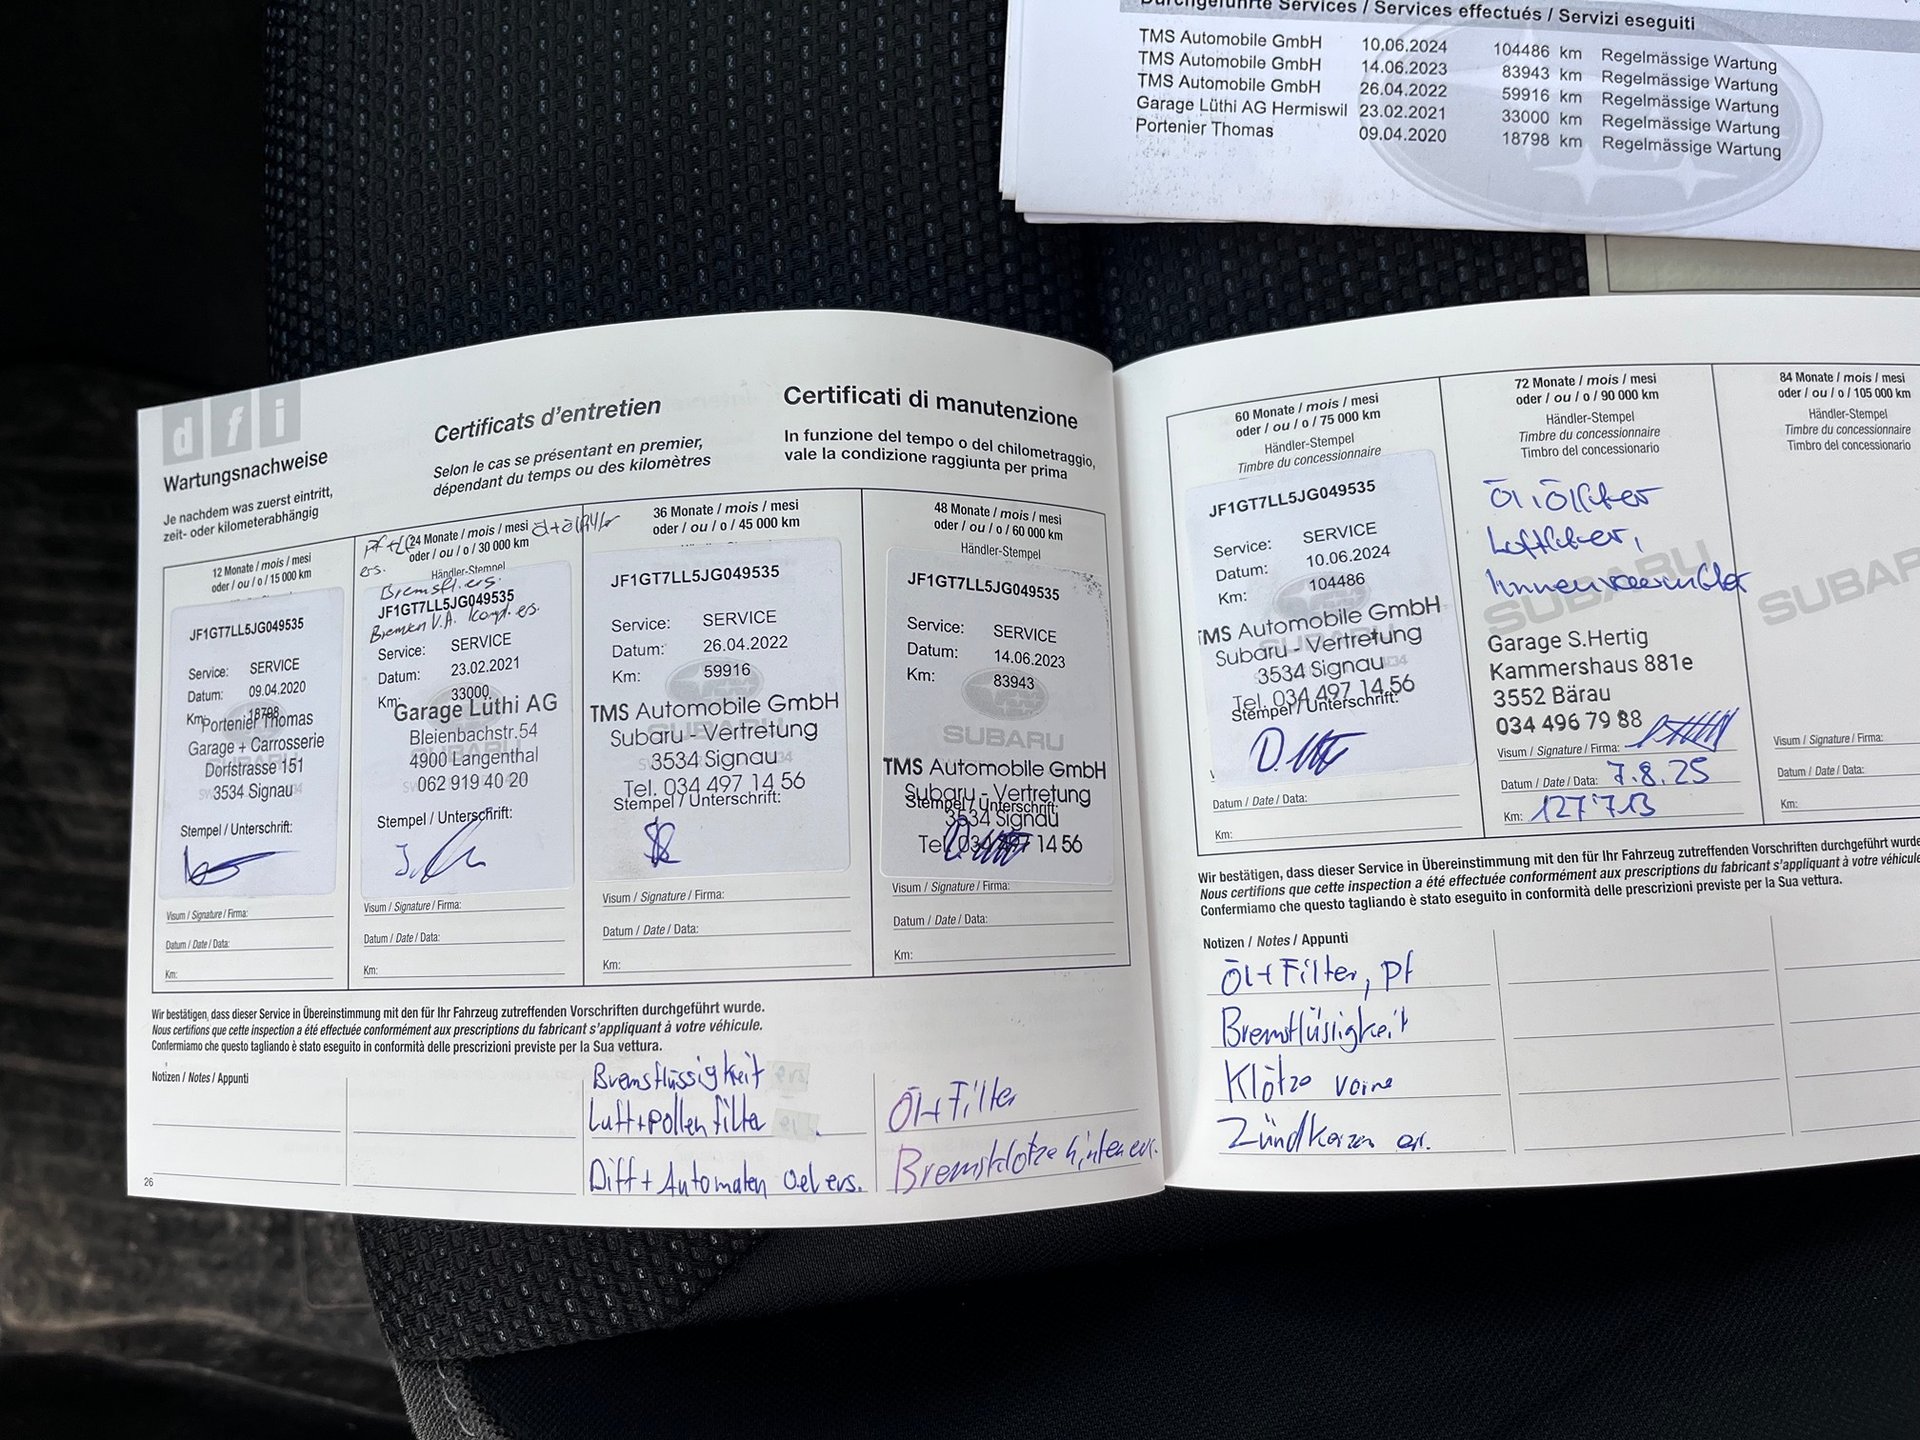 Durchgeführte Services / Services effectués / Servizi eseguiti
TMS Automobile GmbH 10.06.2024 104486 km Regelmässige Wartung
TMS Automobile GmbH 14.06.2023 83943 km Regelmässige Wartung
TMS Automobile GmbH 26.04.2022 59916 km Regelmässige Wartung
Garage Lüthi AG Hermiswil 23.02.2021 33000 km Regelmässige Wartung
Portenier Thomas 09.04.2020 18798 km Regelmässige Wartung
dfi
Wartungsnachweise
Je nachdem was zuerst eintritt,
zeit- oder kilometerabhängig
Certificats d'entretien
Selon le cas se présentant en premier,
dépendant du temps ou des kilomètres
Certificati di manutenzione
In funzione del tempo o del chilometraggio,
vale la condizione raggiunta per prima
12 Monate / mois / mesi
oder / ou / o / 15 000 km
JF1GT7LL5JG049535
Service: SERVICE
Datum: 09.04.2020
Km: 18798
Portenier Thomas
Garage + Carrosserie
Dorfstrasse 151
3534 Signau
Stempel / Unterschrift:
Visum / Signature / Firma:
Datum / Date / Data:
Km:
24 Monate / mois / mesi
oder / ou / o / 30 000 km
ers.
Händler-Stempel
Bremsfl. ers.
JF1GT7LL5JG049535
Bremsen V.A. kompl. ers.
Service: SERVICE
Datum: 23.02.2021
Km: 33000
Garage Lüthi AG
Bleienbachstr.54
4900 Langenthal
062 919 40 20
Stempel / Unterschrift:
Visum / Signature / Firma:
Datum / Date / Data:
Km:
36 Monate / mois / mesi
oder / ou / o / 45 000 km
JF1GT7LL5JG049535
Service: SERVICE
Datum: 26.04.2022
Km: 59916
TMS Automobile GmbH
Subaru - Vertretung
3534 Signau
Tel. 034 497 14 56
Stempel / Unterschrift:
Visum / Signature / Firma:
Datum / Date / Data:
Km:
48 Monate / mois / mesi
oder / ou / o / 60 000 km
Händler-Stempel
JF1GT7LL5JG049535
Service: SERVICE
Datum: 14.06.2023
Km: 83943
SUBARU
TMS Automobile GmbH
Subaru - Vertretung
Stempel / Unterschrift:
3534 Signau
Tel. 034 497 14 56
Visum / Signature / Firma:
Datum / Date / Data:
Km:
Wir bestätigen, dass dieser Service in Übereinstimmung mit den für Ihr Fahrzeug zutreffenden Vorschriften durchgeführt wurde.
Nous certifions que cette inspection a été effectuée conformément aux prescriptions du fabricant s'appliquant à votre véhicule.
Confermiamo che questo tagliando è stato eseguito in conformità delle prescrizioni previste per la Sua vettura.
Notizen / Notes / Appunti
Bremsflüssigkeit
Luft + pollenfilter
Diff + Automaten Oel ers.
Öl + Filter
Bremsklötze hinten ers.
26
60 Monate / mois / mesi
oder / ou / o / 75 000 km
Händler-Stempel
Timbre du concessionnaire
JF1GT7LL5JG049535
Service: SERVICE
Datum: 10.06.2024
Km: 104486
TMS Automobile GmbH
Subaru - Vertretung
3534 Signau
Tel. 034 497 14 56
Stempel / Unterschrift:
Datum / Date / Data:
Km:
72 Monate / mois / mesi
oder / ou / o / 90 000 km
Händler-Stempel
Timbre du concessionnaire
Timbro del concessionario
Öl, Ölfilter
Luftfilter,
Innenraumfilter
SUBARU
Garage S.Hertig
Kammershaus 881e
3552 Bärau
034 496 79 88
Visum / Signature / Firma:
Datum / Date / Data: 7.8.25
Km: 127'713
84 Monate / mois / mesi
oder / ou / o / 105 000 km
Händler-Stempel
Timbre du concessionnaire
Timbro del concessionario
SUBAR
Visum / Signature / Firma:
Datum / Date / Data:
Km:
Wir bestätigen, dass dieser Service in Übereinstimmung mit den für Ihr Fahrzeug zutreffenden Vorschriften durchgeführt wurde
Nous certifions que cette inspection a été effectuée conformément aux prescriptions du fabricant s'appliquant à votre véhicule
Confermiamo che questo tagliando è stato eseguito in conformità delle prescrizioni previste per la Sua vettura.
Notizen / Notes / Appunti
Öl + Filter, Pf
Bremsflüssigkeit
Klötze vorne
Zündkerzen ers.